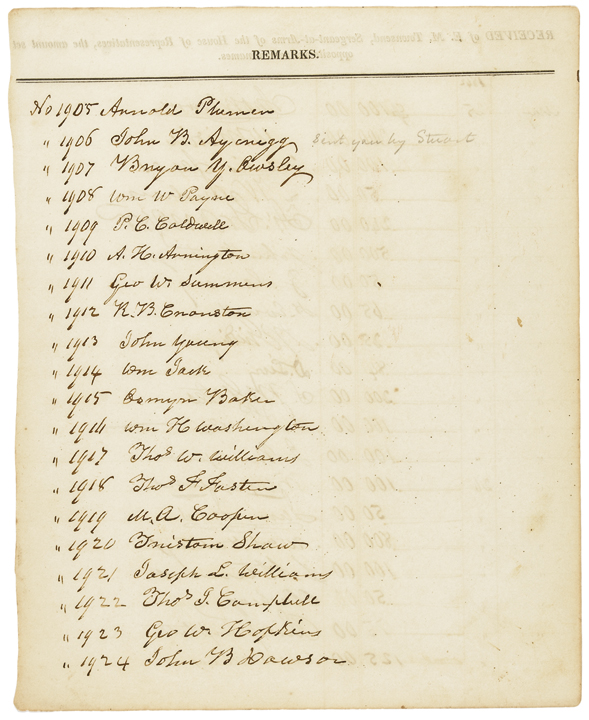 REMARKS.
No 1905 Arnold Plumer
" 1906 John B. Aycrigg sent your by Stuart
" 1907 Bryan Y. Owsley
" 1908 Wm W Payne
" 1909 P. C. Caldwell
" 1910 A. H. Arrington
" 1911 Geo W. Summers
" 1912 R. B. Cranston
" 1913 John Young
" 1914 Wm Jack
" 1915 Osmyn Baker
" 1916 Wm H Washington
" 1917 Thos W. Williams
" 1918 Thos F Foster
" 1919 M. A. Cooper
" 1920 Tristam Shaw
" 1921 Joseph L. Williams
" 1922 Thos J. Campbell
" 1923 Geo W. Hopkins
" 1924 John B Dawson